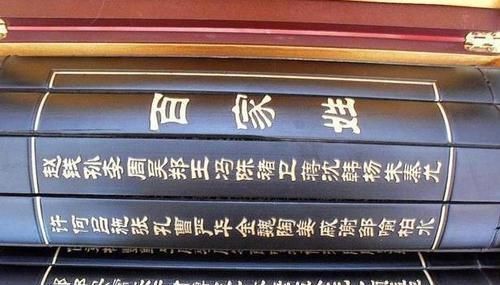 百家姓
赵钱孙李周吴郑王冯陈褚卫蒋沈韩杨朱秦尤
许何吕施张孔曹严华金魏陶姜戚谢邹喻柏水